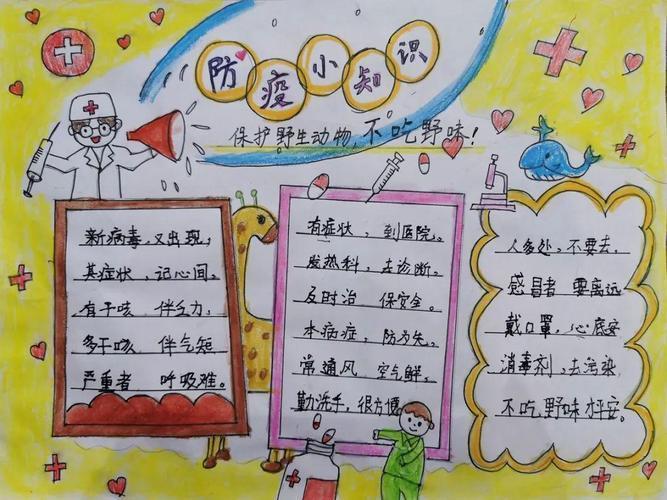 防疫小知识
保护野生动物,不吃野味!
新病毒,又出现,
其症状,记心间。
有干咳 伴乏力,
多干咳 伴气短
严重者 呼吸难。
有症状,到医院。
发热科,去诊断。
及时治 保安全。
本病症,防为先。
常通风 空气鲜。
勤洗手,很方便。
人多处,不要去,
感冒者 要离远
戴口罩,心底安
消毒剂,去污染
不吃野味才平安。